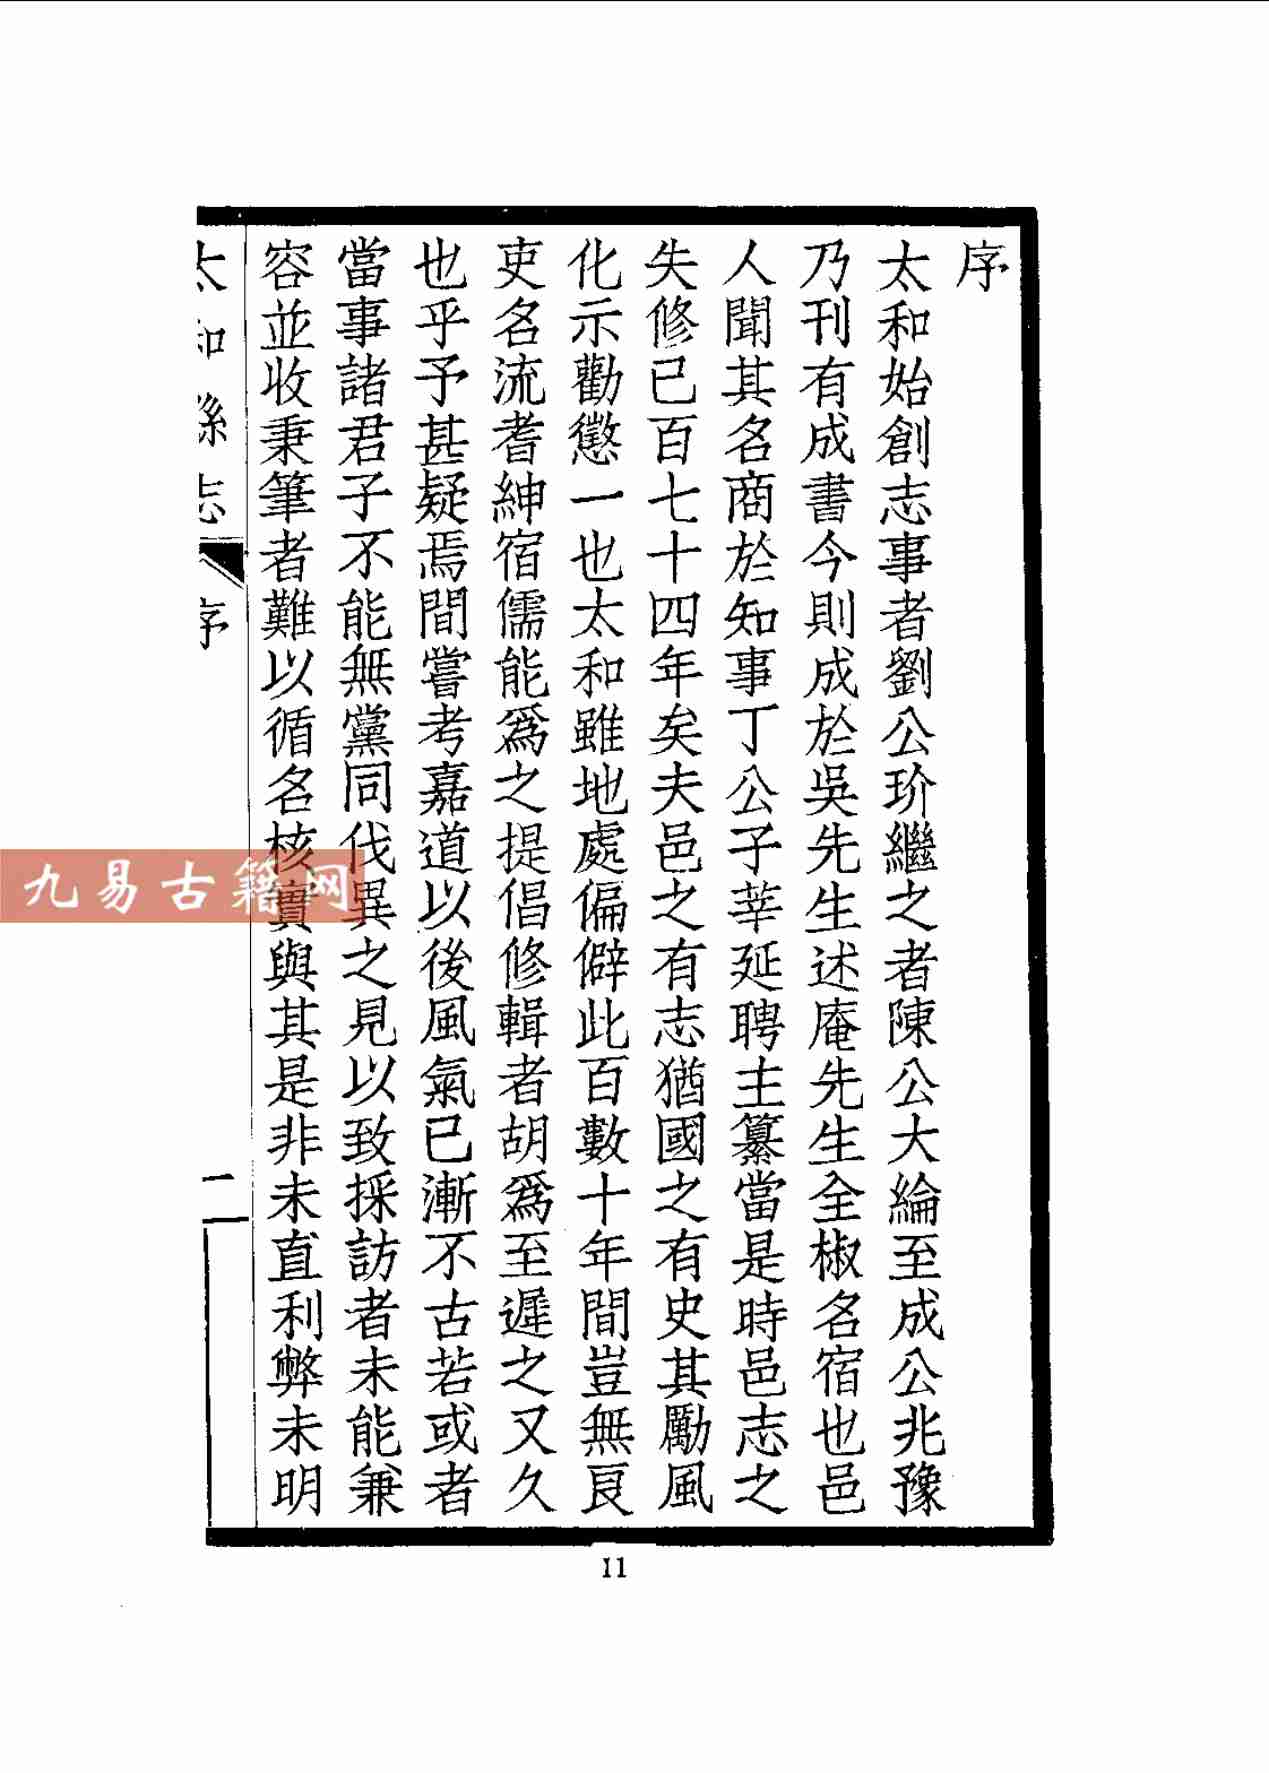 序
太和始創志事者劉公玠繼之者陳公大綸至成公兆豫
乃刊有成書今則成於吳先生述庵先生全椒名宿也邑
人聞其名商於知事丁公子莘延聘主纂當是時邑志之
失修已百七十四年矣夫邑之有志猶國之有史其勵風
化示勸懲一也太和雖地處偏僻此百數十年間豈無良
吏名流耆紳宿儒能爲之提倡修輯者胡爲至遲之又久
也乎予甚疑焉間嘗考嘉道以後風氣已漸不古若或者
當事諸君子不能無黨同伐異之見以致採訪者未能兼
容並收秉筆者難以循名核實與其是非未直利弊未明
太和縣志
序
一
九易古籍网
11